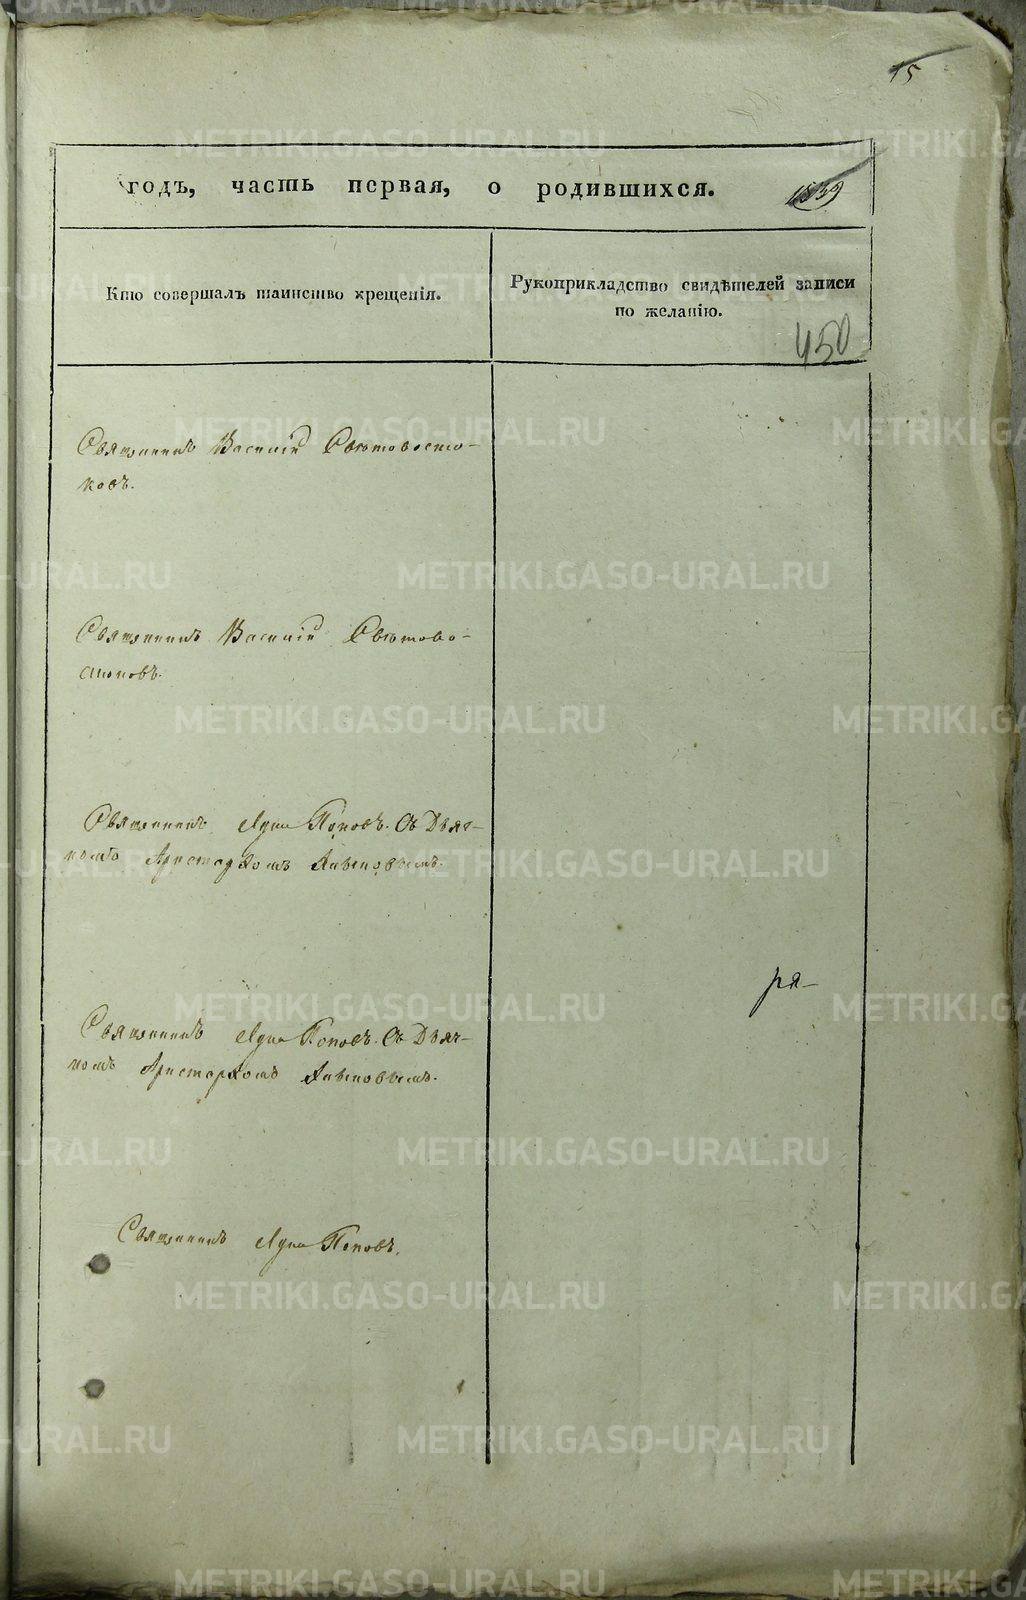 15
годъ, часть первая, о родившихся.
1839
Кто совершалъ таинство крещенія.
Рукоприкладство свидѣтелей записи
по желанію.
450
Священникъ Василій Свѣтовосто-
ковъ.
Священникъ Василій Свѣтово-
стоковъ.
Священникъ Лука Поповъ. Съ Дьяч-
комъ Аристархомъ
Священникъ Лука Поповъ. Съ Дьяч-
комъ Аристархомъ
ря-
Священникъ Лука Поповъ.
METRIKI.GASO-URAL.RU